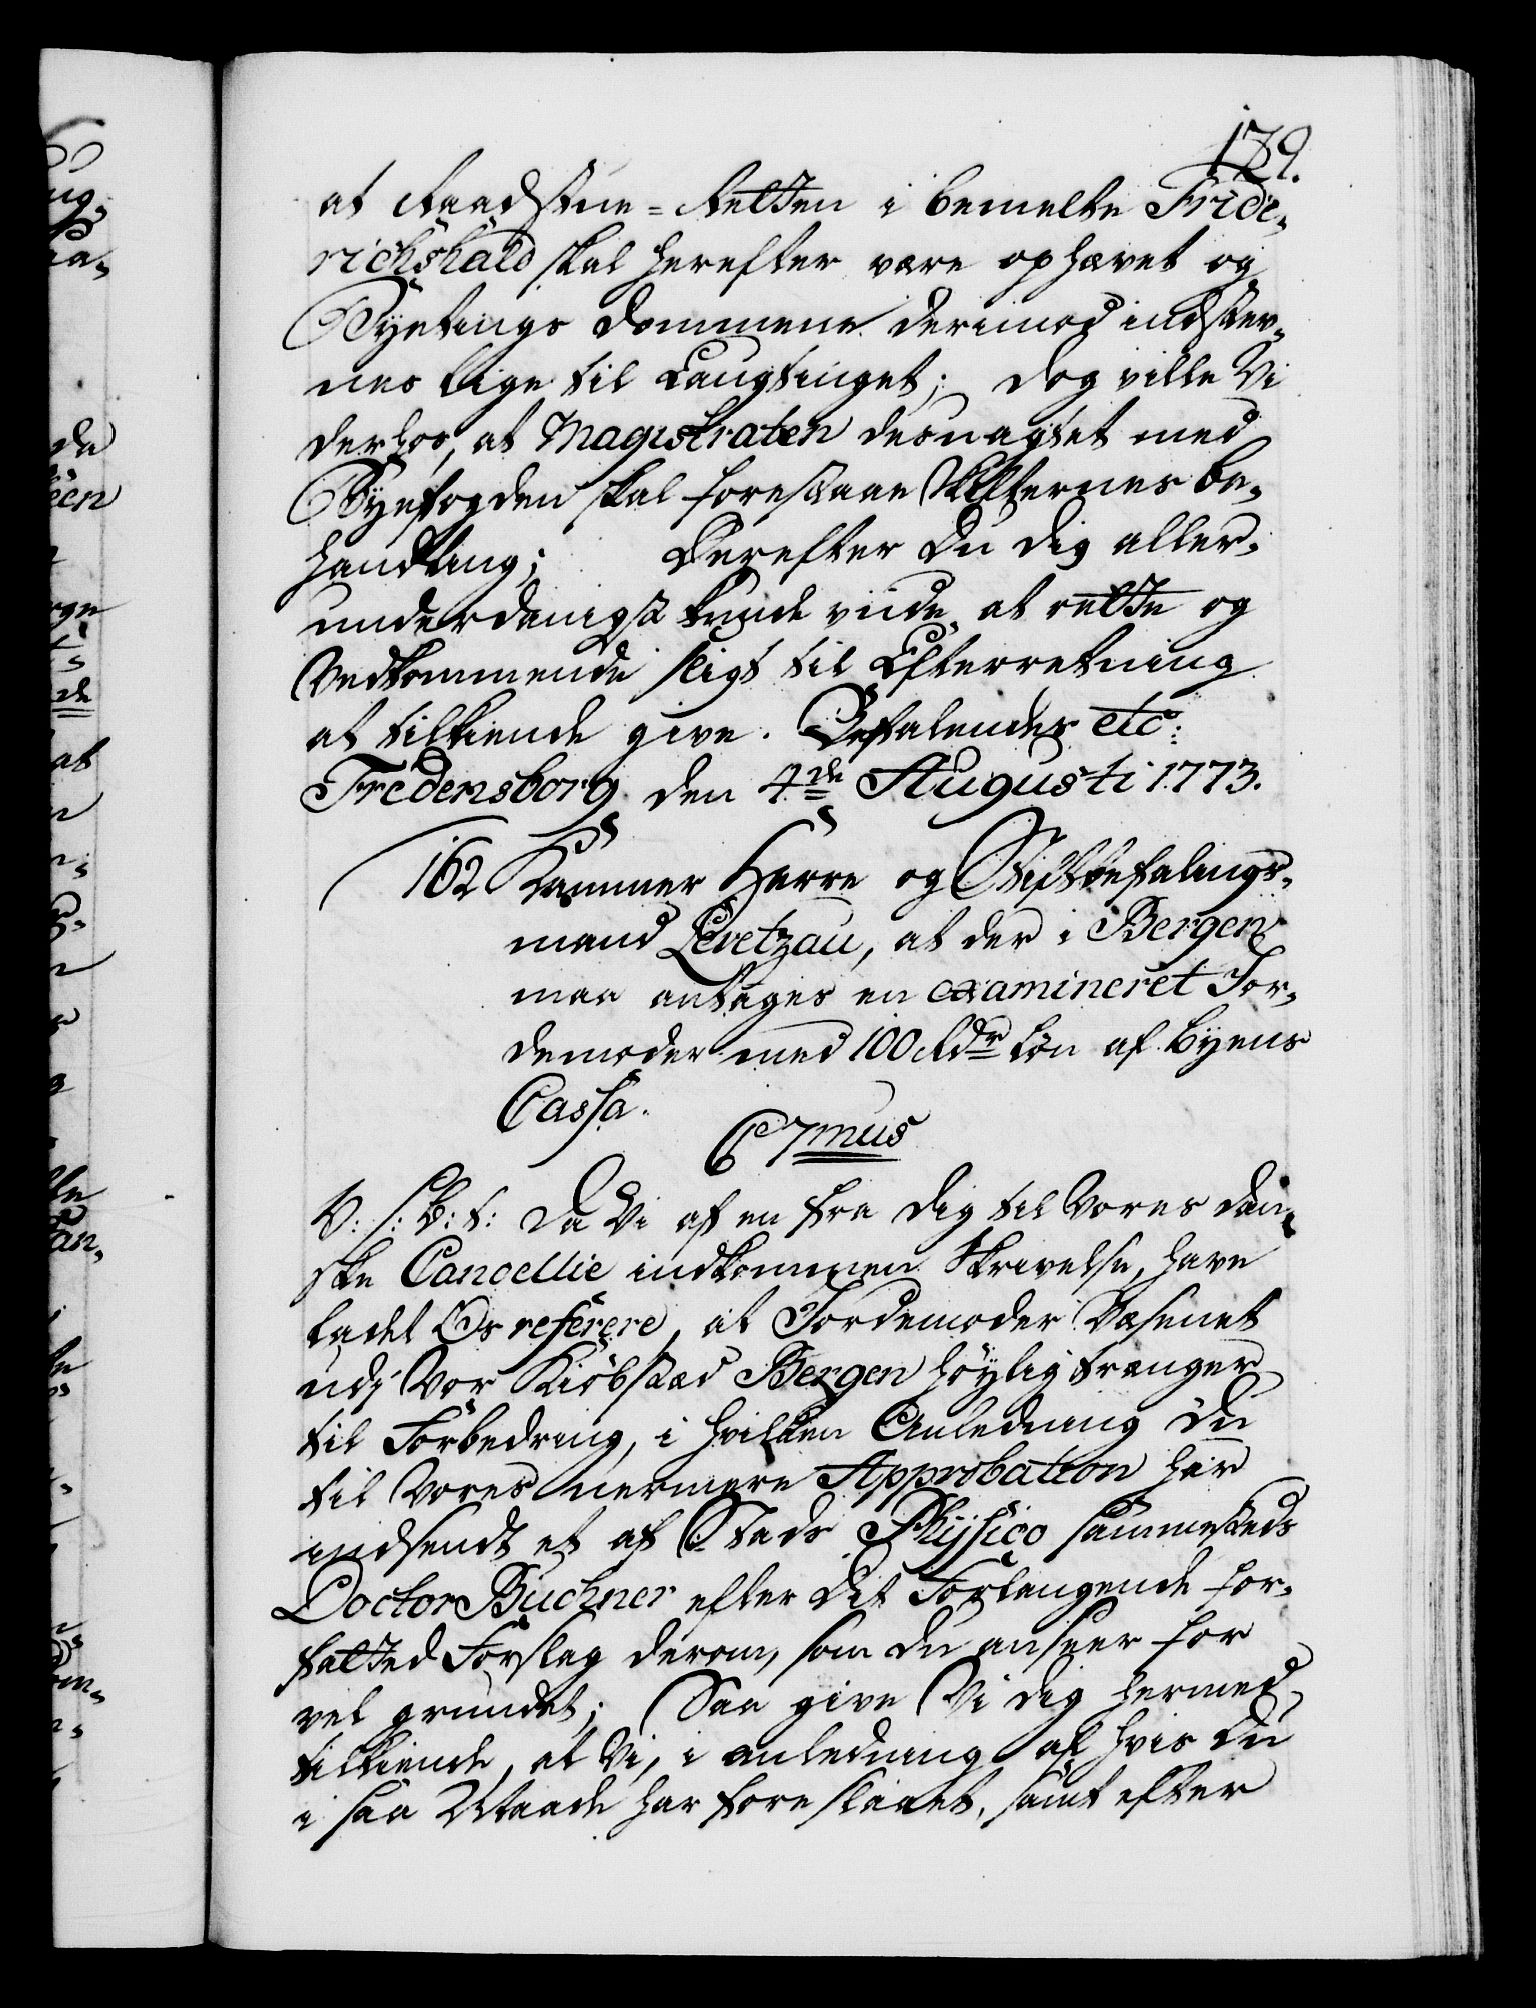 179.
at Raadstue-Retten i bemelte Fride-
richshald skal herefter være ophævet og
Byetings Dommene derimod indstev-
nes lige til Laugtinget; dog ville Vi
derhos, at Magistraten desuagtet med
Byefogden skal forestaae Skifternes be-
handling; Derefter Du dig aller-
underdanigst kunde viide at rette og
Vedkommende sligt til Efterretning
at tilkiende give. Befalendes etc:
Fredensborg den 4de Augusti 1773.
162 Kammer Herre og Stiftbefalings-
mand Levetzau, at der i Bergen
maa antages en examineret Jor-
demoder med 100 Rdr Løn af Byens
Cassa.
C7mus
V: S: B: t: Da Vi af en fra dig til Vores dan-
ske Cancellie indkommen Skrivelse, have
ladet Os referere, at Jordemoder Væsenet
udj Vor Kiöbstæd Bergen høylig trænger
til Forbedring, i hvilken Anledning Du
til Vores nermere Approbation har
indsendt et af Stads Physico sammesteds
Doctor Buchner efter Dit Forlangende for-
fatted Forslag derom, som Du anseer for
vel grundet; Saa give Vi dig hermed
tilkiende, at Vi, i anledning af hvis Du
i saa Maade har foreslaaet, samt efter